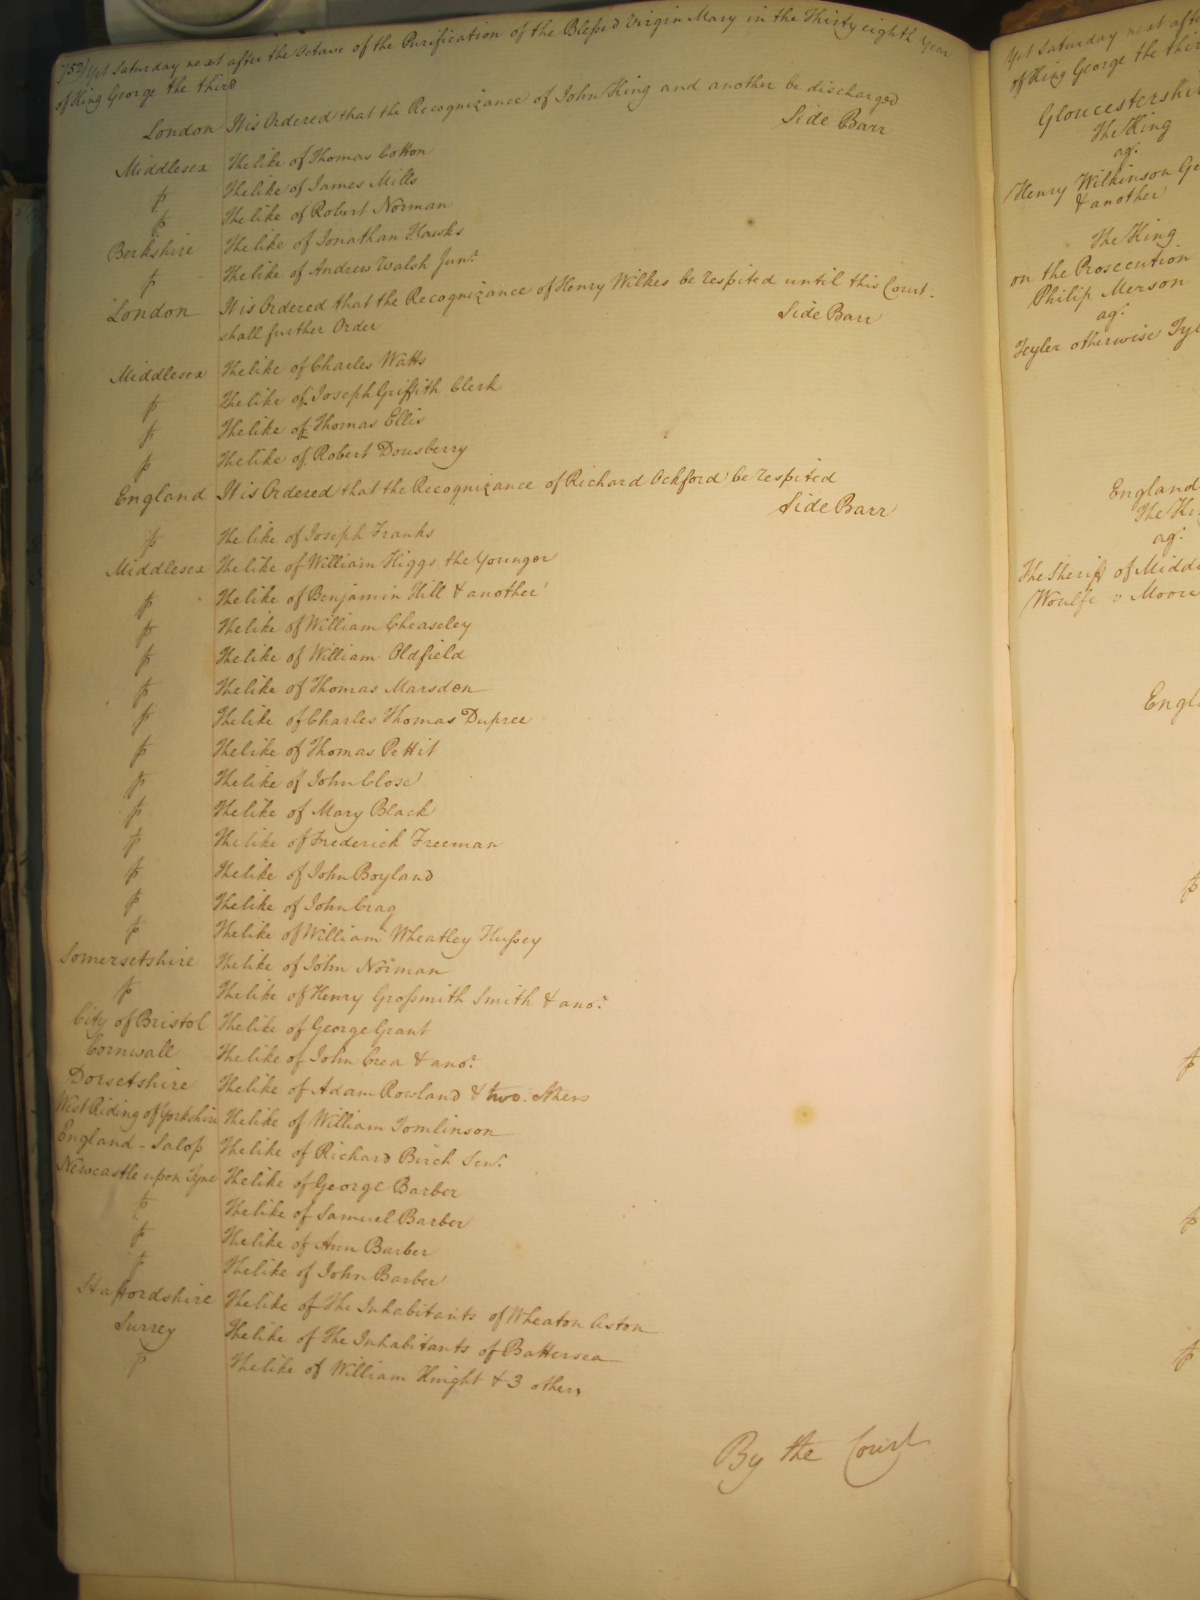 752) Yet Saturday next after the Octave of the Purification of the Blessed Virgin Mary in the Thirty eighth Year
of King George the third
London It is Ordered that the Recognizance of John King and another be discharged
Side Barr
Middlesex The like of Thomas Cotton
The like of James Mills
The like of Robert Norman
Berkshire The like of Jonathan Hawks
The like of Andrew Walsh Junr.
London It is Ordered that the Recognizance of Henry Wilkes be respited until this Court
shall further Order
Side Barr
Middlesex The like of Charles Watts
The like of Joseph Griffith Clerk
The like of Thomas Ellis
The like of Robert Dousberry
England It is Ordered that the Recognizance of Richard Ockford be respited
Side Barr
The like of Joseph Franks
Middlesex The like of William Higgs the Younger
The like of Benjamin Hill & another
The like of William Cheaseley
The like of William Oldfield
The like of Thomas Marsden
The like of Charles Thomas Dupree
The like of Thomas Pettit
The like of John Close
The like of Mary Black
The like of Frederick Freeman
The like of John Boyland
The like of John Crag
The like of William Wheatley Hussey
Somersetshire The like of John Norman
The like of Henry Grossmith Smith & anor.
City of Bristol The like of George Grant
Cornwall The like of John Crea & anor.
Dorsetshire The like of Adam Rowland & two others
West Riding of Yorkshire The like of William Tomlinson
England - Salop The like of Richard Birch Senr.
Newcastle upon Tyne The like of George Barber
The like of Samuel Barber
The like of Ann Barber
The like of John Barber
Staffordshire The like of The Inhabitants of Wheaton Aston
Surrey The like of The Inhabitants of Battersea
The like of William Knight & 3 others
By the Court
Yet Saturday next
of King George the
The King
agt.
Henry Wilkinson
& another
The King
on the Prosecution
Philip Merson
agt.
otherwise
England
agt.
The Sheriff of
v Moore